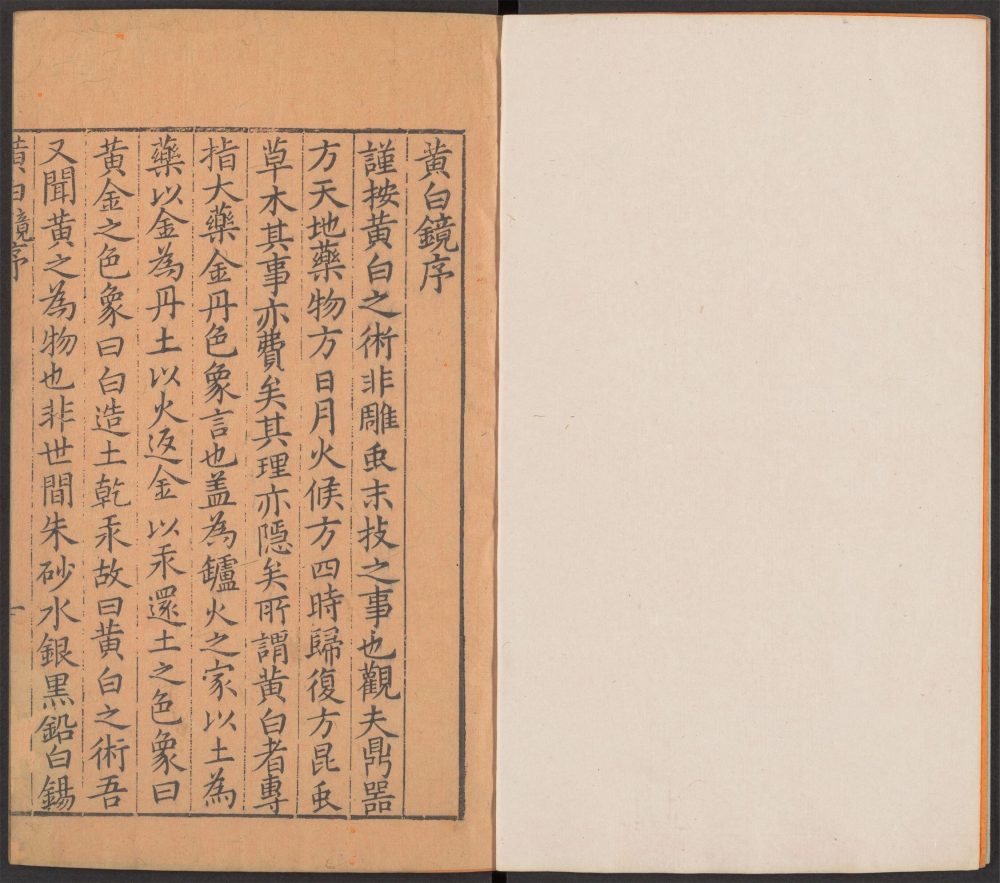 黄白鏡序
謹按黄白之術非雕䖝末技之事也觀夫鼎噐
方天地藥物方日月火候方四時歸復方昆䖝
草木其事亦費矣其理亦隱矣所謂黄白者專
指大藥金丹色象言也盖為鑪火之家以土為
藥以金為丹土以火返金以汞還土之色象曰
黄金之色象曰白造土乾汞故曰黄白之術吾
又聞黄之為物也非世間朱砂水銀黒鉛白錫
黄白鏡序
一